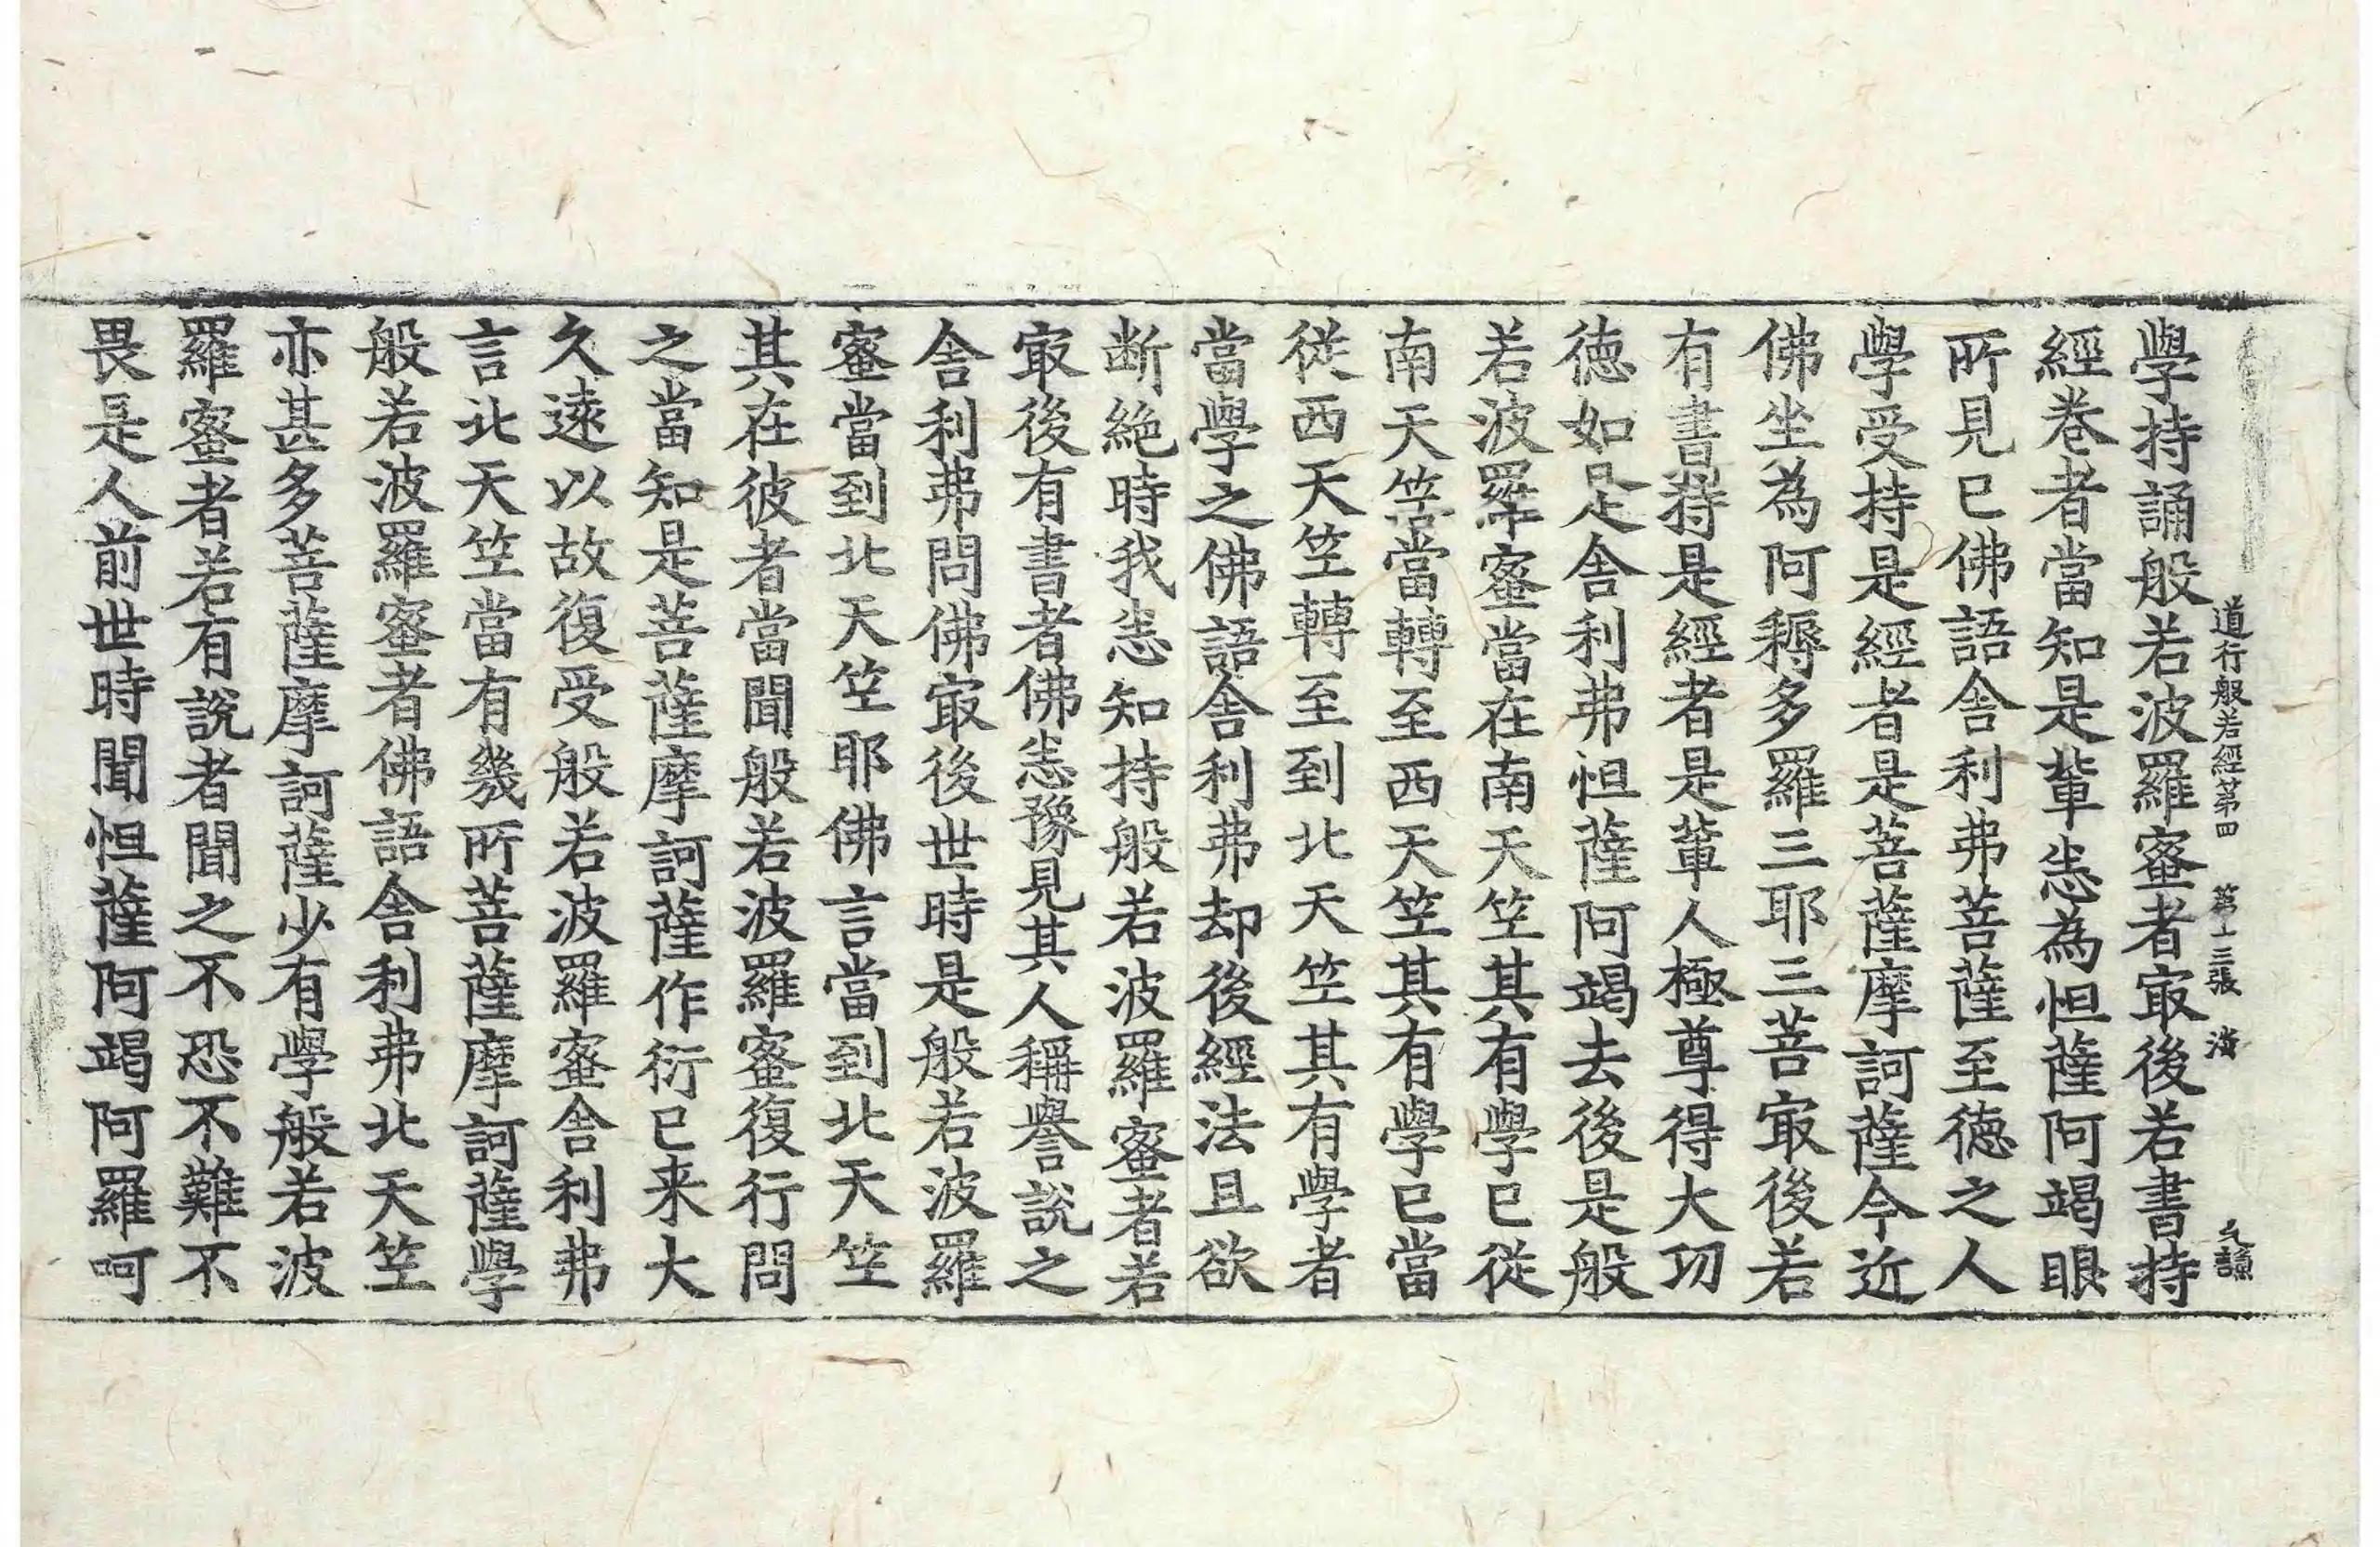 道行般若經第四　第十三張　海
學持誦般若波羅蜜者㝡後若書持
經卷者當知是輩悉為怛薩阿竭眼
所見已佛語舍利弗菩薩至德之人
學受持是經者是菩薩摩訶薩今近
佛坐為阿耨多羅三耶三菩㝡後若
有書持是經者是輩人極尊得大功
德如是舍利弗怛薩阿竭去後是般
若波羅蜜當在南天竺其有學已從
南天竺當轉至西天竺其有學已當
從西天竺轉至到北天竺其有學者
當學之佛語舍利弗却後經法且欲
断絶時我悉知持般若波羅蜜者若
㝡後有書者佛悉豫見其人稱譽說之
舍利弗問佛㝡後世時是般若波羅
蜜當到北天竺耶佛言當到北天竺
其在彼者當聞般若波羅蜜復行問
之當知是菩薩摩訶薩作衍已来大
久遠以故復受般若波羅蜜舍利弗
言北天竺當有幾所菩薩摩訶薩學
般若波羅蜜者佛語舍利弗北天竺
亦甚多菩薩摩訶薩少有學般若波
羅蜜者若有說者聞之不恐不難不
畏是人前世時聞怛薩阿竭阿羅呵